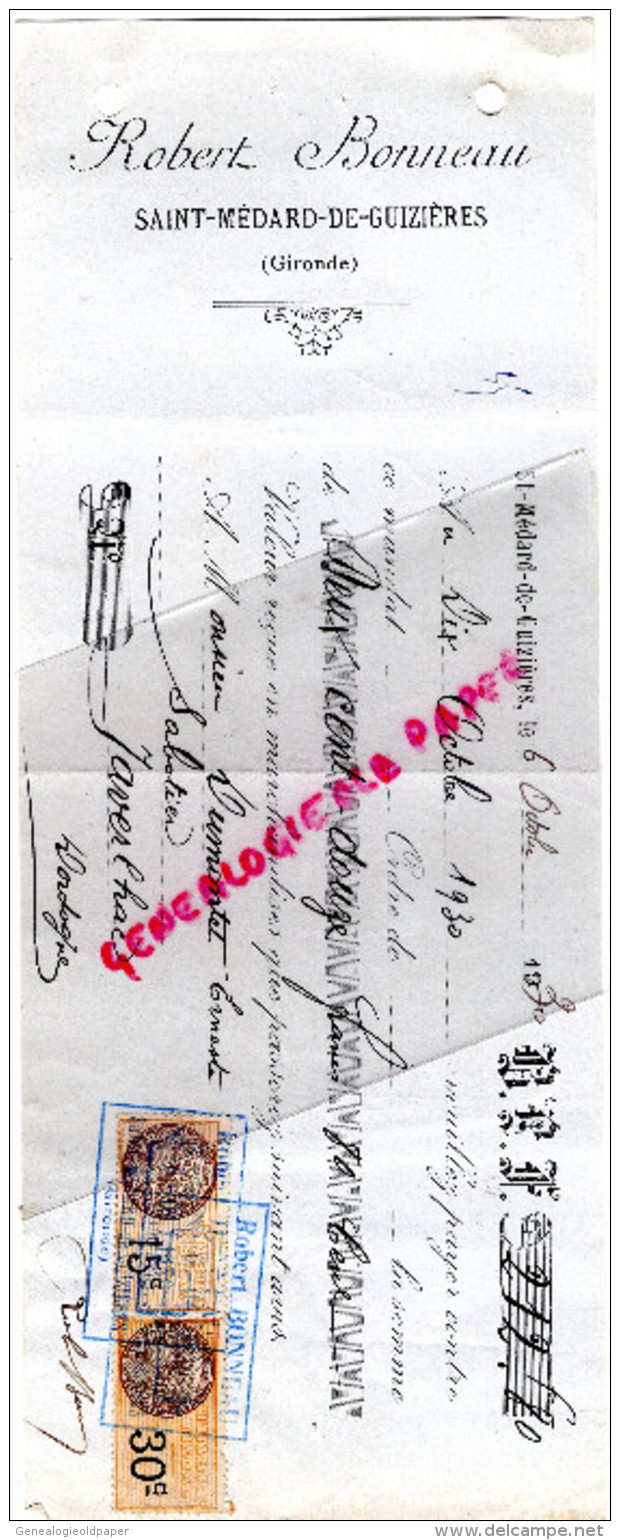 Robert Bonneau
SAINT-MÉDARD-DE-GUIZIÈRES
(Gironde)
St-Médard-de-Guizières, le 6 Octobre 1930
B.P.F. 212f,
Au Dix Octobre 1930 veuillez payer contre
ce mandat Ordre de la somme
de Deux cent douze francs
Valeur reçue en marchandises que passerez suivant avis
A Monsieur Dumontet Ernest
Sabotier
Javerlhac
Dordogne
GENEALOGIE OLD PAPER
15c
30c
Robert BONNEAU
Genealogieoldpaper
delcampe.net